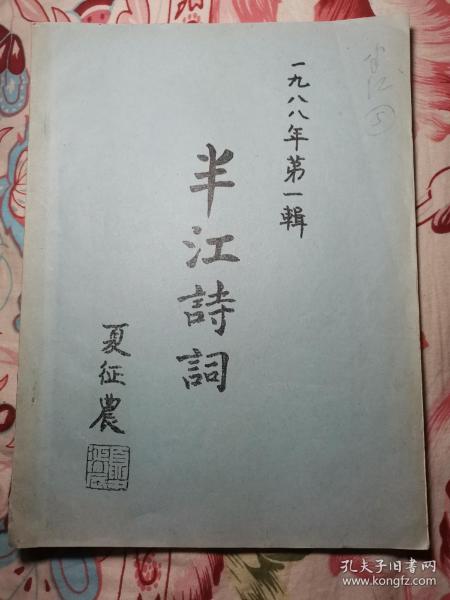 一九八八年第一輯
半江詩詞
夏征農
半江
5
孔夫子旧书网
www.kongfz.com